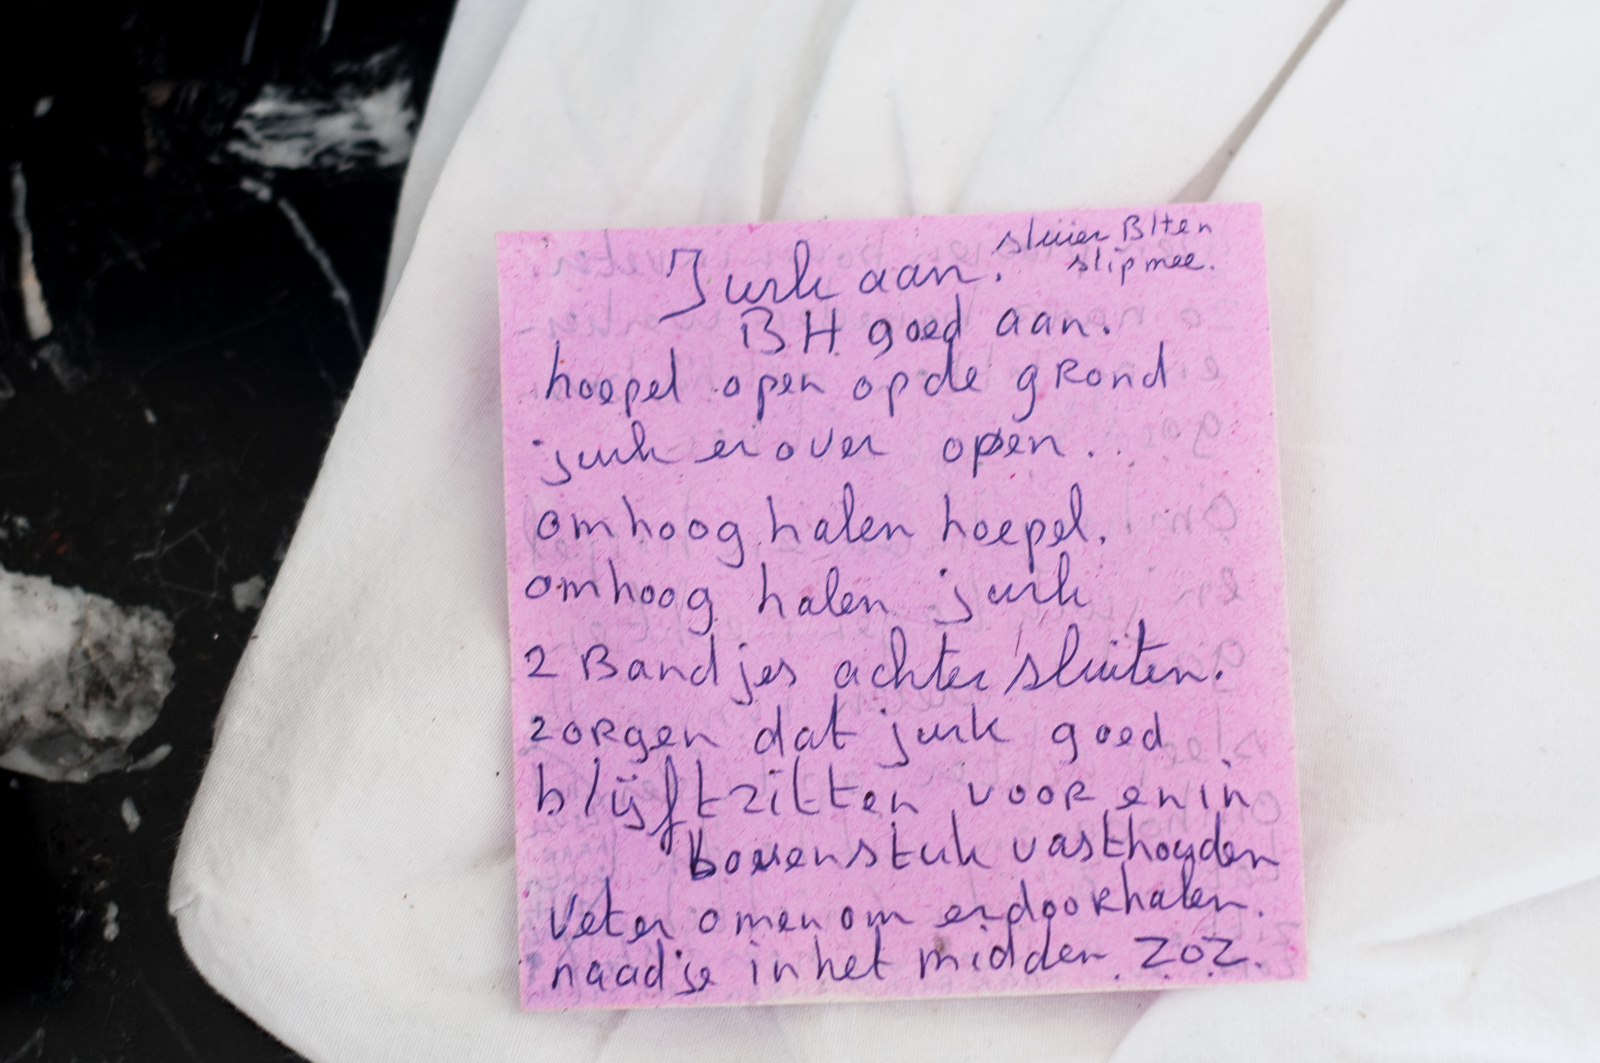 Jurk aan.
sluier Blten
slip mee.
BH goed aan.
hoepel open op de gRond
jurk er over open.
omhoog halen hoepel.
omhoog halen jurk
2 Bandjes achter sluiten.
zoRgen dat jurk goed
blijft zitten vooR en in
Bovenstuk vasthouden
Veter om en om erdooRhalen.
naadje in het midden. ZOZ.